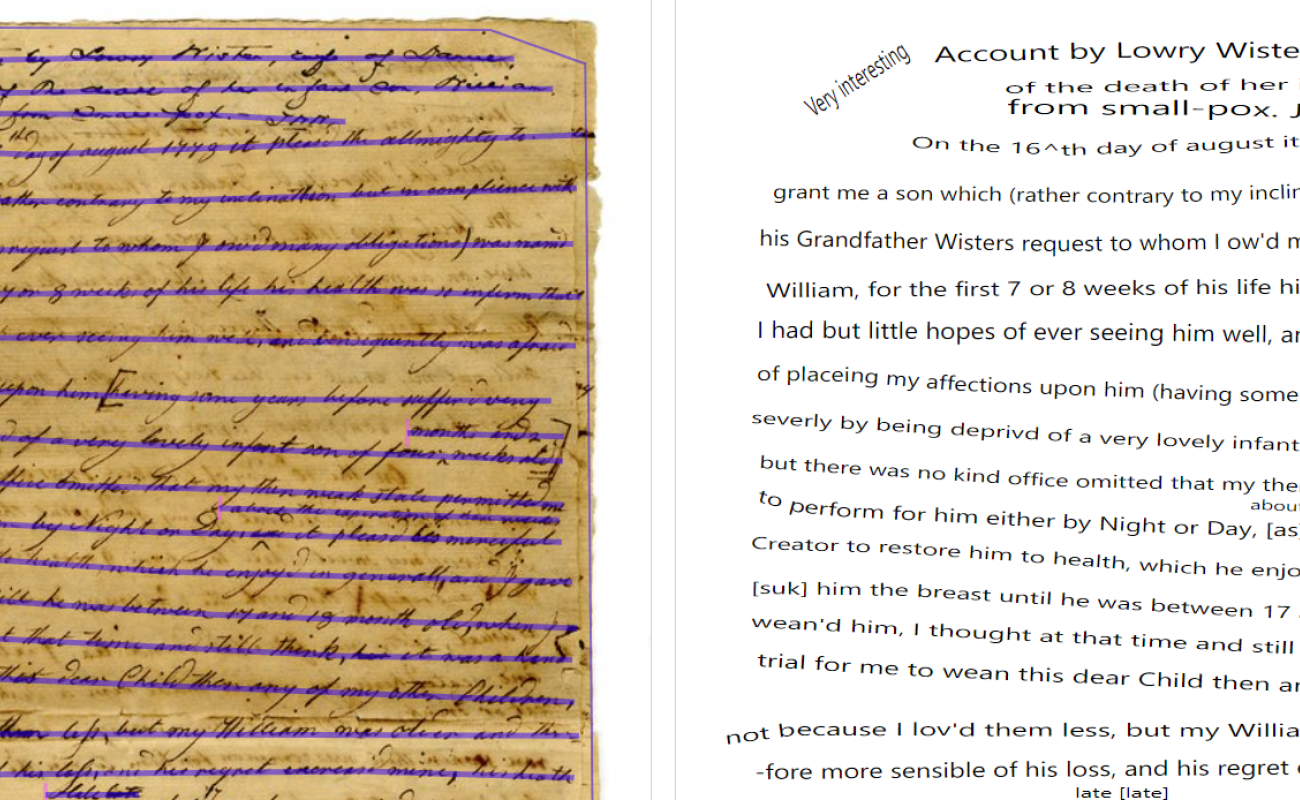 by Lowry Wister, wife of Danie
of the death of her infant son, William
from Small-pox.
th day of august it pleasd the allmighty to
rather contrary to my inclination but in complience with
request to whom I ow'd many obligations) was namd
7 or 8 weeks of his life his health was so infirm that
ever seeing him well, and consequently was afraid
upon him [having some years before suffer'd very
months and
of a very lovely infant son of four weeks old]
office omitted that my then weak state permitted me
about the expiration of
by Night or Day, it pleasd his merciful
health which he enjoy'd in general, and I gave
till he was between 17 and 18 month old, when
at that time and still think, it was a hard
this dear Child then any of my other Children,
them less, but my William was older and there
his loss, and his regret increas'd mine, his health
late late
Very interesting
Account by Lowry Wiste
of the death of her
from small-pox. J
On the 16^th day of august it
grant me a son which (rather contrary to my inclin
his Grandfather Wisters request to whom I ow'd m
William, for the first 7 or 8 weeks of his life hi
I had but little hopes of ever seeing him well, an
of placeing my affections upon him (having some
severly by being deprivd of a very lovely infant
but there was no kind office omitted that my the
about
to perform for him either by Night or Day, [as]
Creator to restore him to health, which he enjo
[suk] him the breast until he was between 17
wean'd him, I thought at that time and still
trial for me to wean this dear Child then an
not because I lov'd them less, but my Willia
-fore more sensible of his loss, and his regret
late [late]